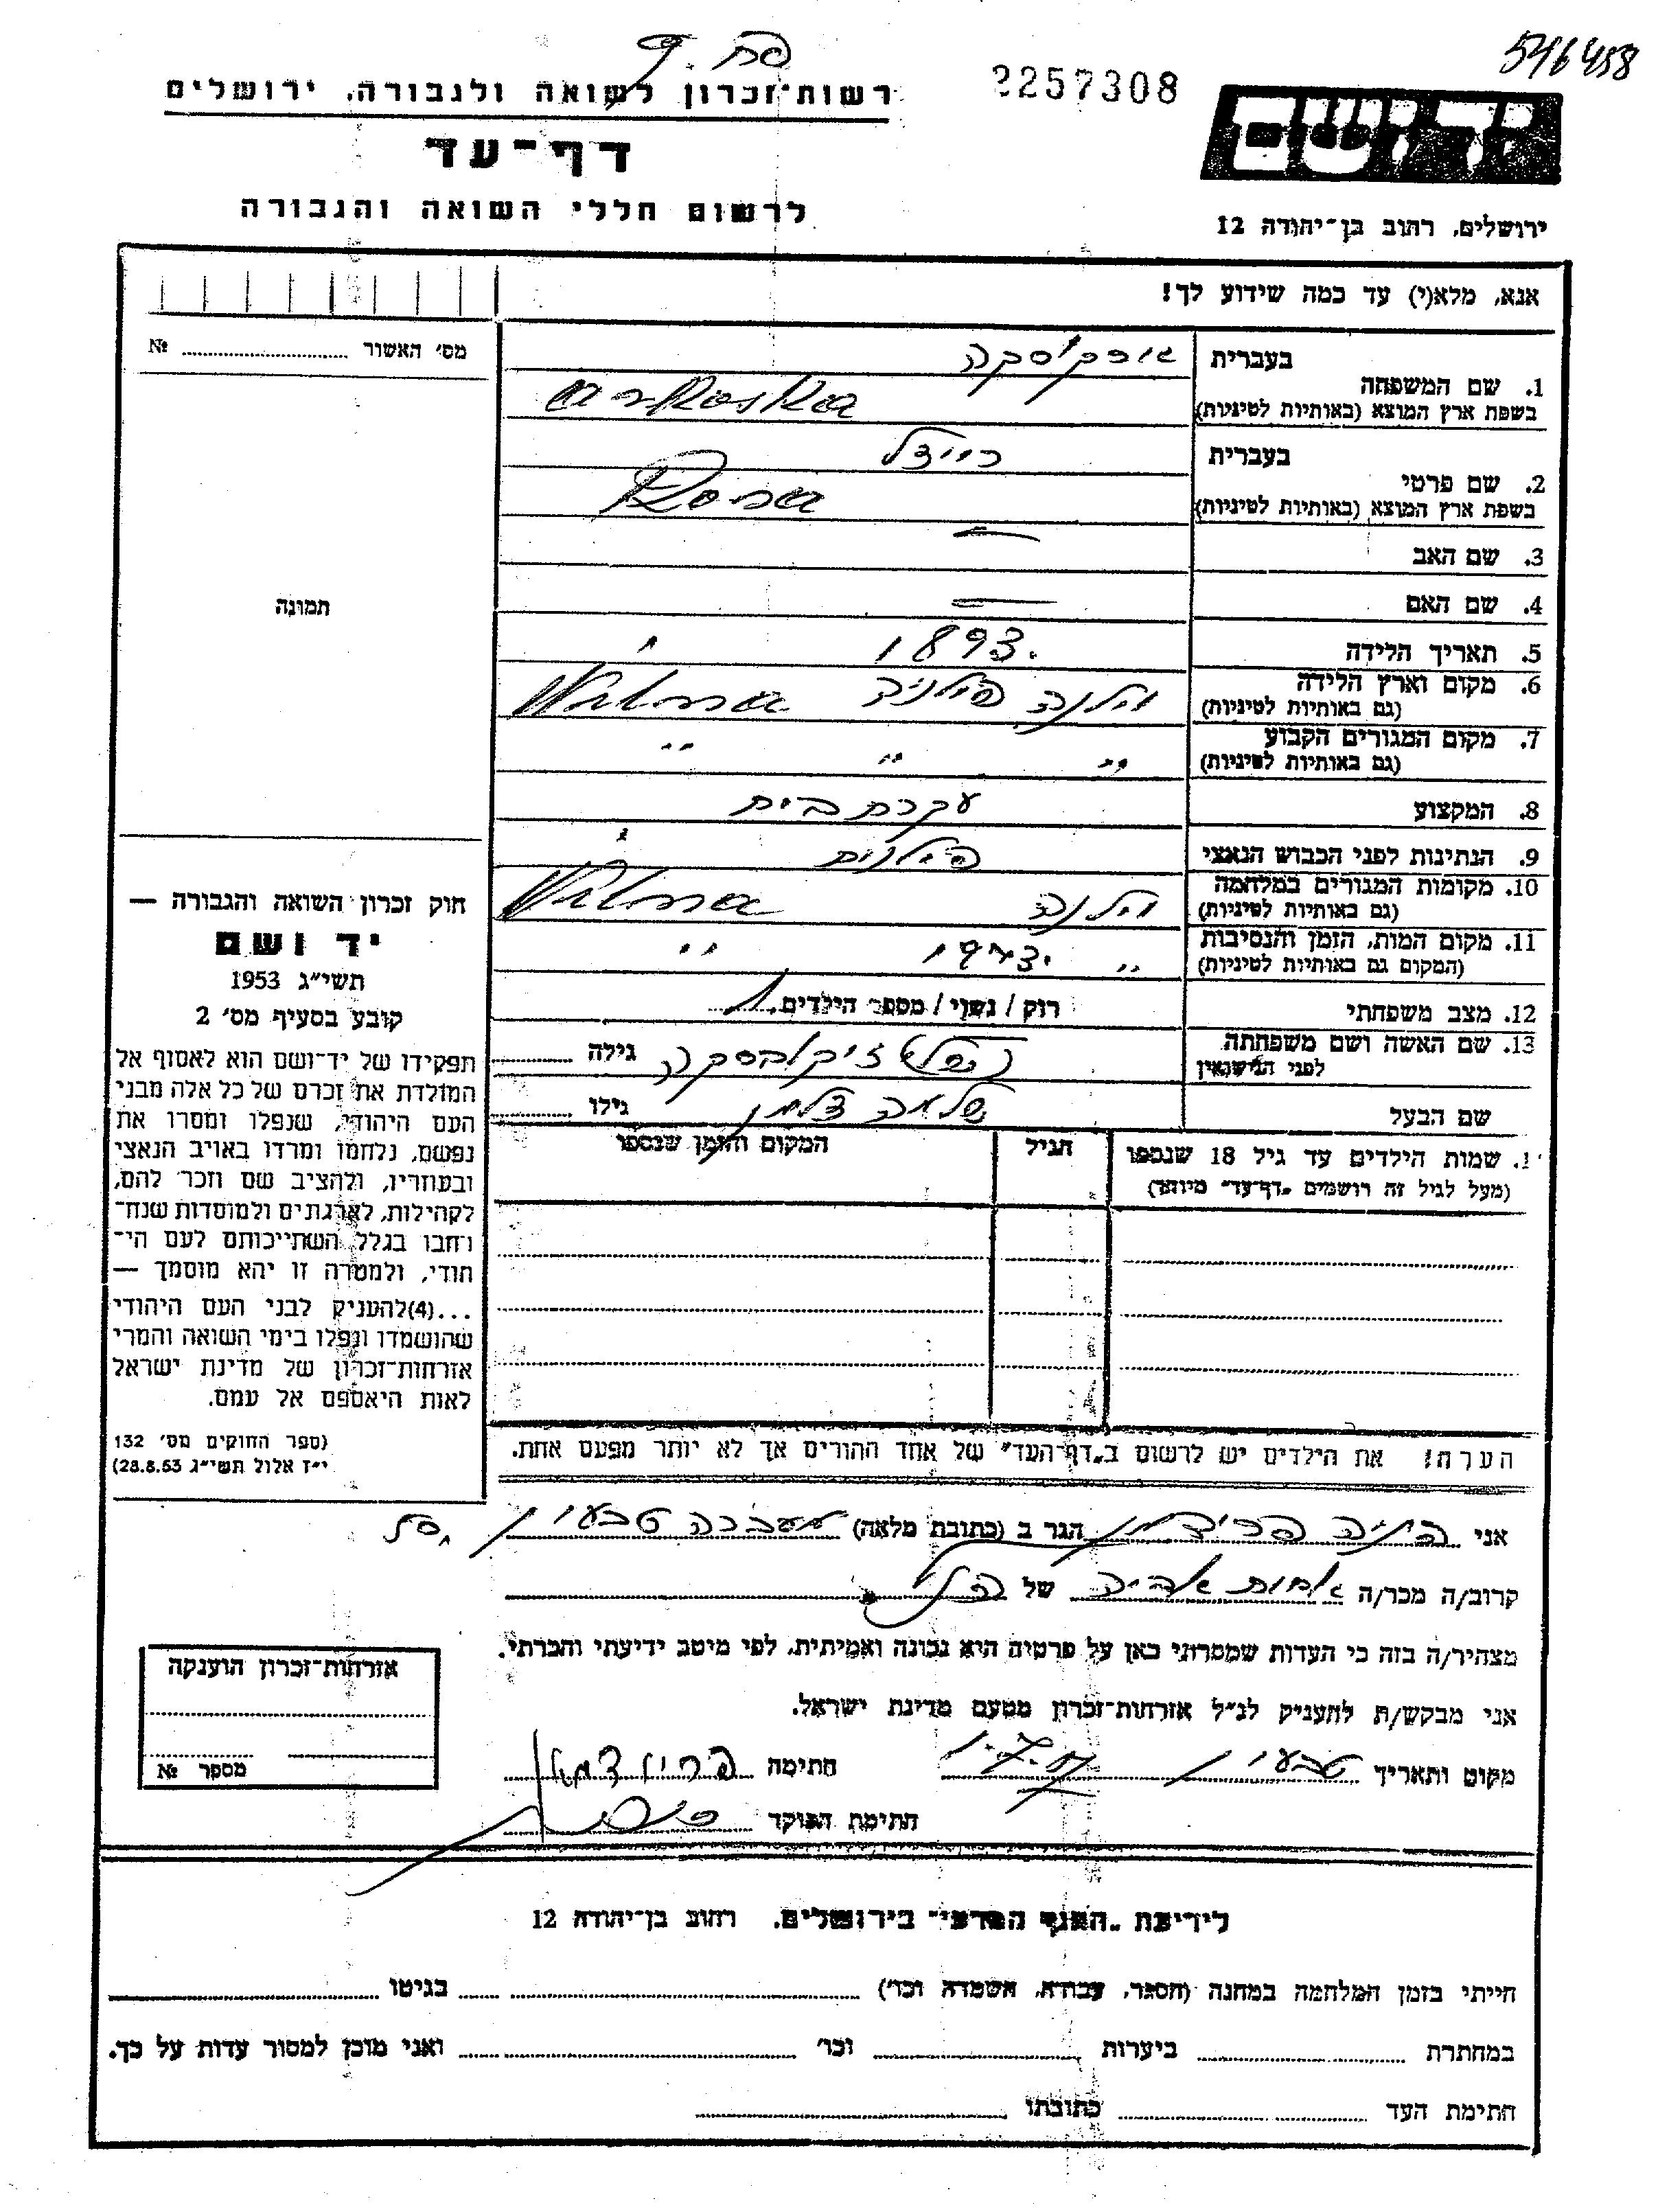 546458
2257308
יד ושם
ירושלים, רחוב בן־יהודה 12
רשות־זכרון לשואה ולגבורה, ירושלים
דף־עד
לרשום חללי השואה והגבורה
אנא, מלא(י) עד כמה שידוע לך!
מס׳ האשור № 
1. שם המשפחה
בעברית
ארקוסקה
בשפת ארץ המוצא (באותיות לטיניות)
arkoska
2. שם פרטי
בעברית
רייזל
בשפת ארץ המוצא (באותיות לטיניות)
Rosa
3. שם האב —
4. שם האם —
5. תאריך הלידה 1893
6. מקום וארץ הלידה
(גם באותיות לטיניות)
וילנה פולניה Wilna
7. מקום המגורים הקבוע
(גם באותיות לטיניות)
״ ״ ״
8. המקצוע עקרת בית
9. הנתינות לפני הכבוש הנאצי פולנית
10. מקומות המגורים במלחמה
(גם באותיות לטיניות)
וילנה Wilna
11. מקום המות, הזמן והנסיבות
(המקום גם באותיות לטיניות)
״ 1943 ״
12. מצב משפחתי רוק / נשוי / מספר הילדים 1
13. שם האשה ושם משפחתה
לפני הנישואין
גילה
שם הבעל שלמה זלמן גילו
שמות הילדים עד גיל 18 שנספו
(מעל לגיל זה רושמים „דף־עד״ מיוחד)
הגיל
המקום והזמן שנספו
הערה! את הילדים יש לרשום ב„דף־העד״ של אחד ההורים אך לא יותר מפעם אחת.
תמונה
חוק זכרון השואה והגבורה —
יד ושם
תשי״ג 1953
קובע בסעיף מס׳ 2
תפקידו של יד־ושם הוא לאסוף אל
המולדת את זכרם של כל אלה מבני
העם היהודי, שנפלו ומסרו את
נפשם, נלחמו ומרדו באויב הנאצי
ובעוזריו, ולהציב שם וזכר להם,
לקהילות, לארגונים ולמוסדות שנח־
רבו בגלל השתייכותם לעם הי־
הודי, ולמטרה זו יהא מוסמך —
...(4)להעניק לבני העם היהודי
שהושמדו ונפלו בימי השואה והמרי
אזרחות־זכרון של מדינת ישראל
לאות היאספם אל עמם.
(ספר החוקים מס׳ 132
י״ז אלול תשי״ג 28.8.53)
אני פרידמן הגר ב (כתובת מלאה) מעברה טבעון
קרוב/ה מכר/ה של
מצהיר/ה בזה כי העדות שמסרתי כאן על פרטיה היא נכונה ואמיתית, לפי מיטב ידיעתי והכרתי.
אני מבקש/ת להעניק לנ״ל אזרחות־זכרון מטעם מדינת ישראל.
מקום ותאריך טבעון חתימה פרידמאן
חתימת הפוקד
אזרחות־זכרון הוענקה
מספר №
לידיעת „האגף המדעי״ בירושלים, רחוב בן־יהודה 12
חייתי בזמן המלחמה במחנה (הסגר, עבודה, השמדה וכו׳) בגיטו
במחתרת ביערות וכו׳ ואני מוכן למסור עדות על כך.
חתימת העד כתובתו